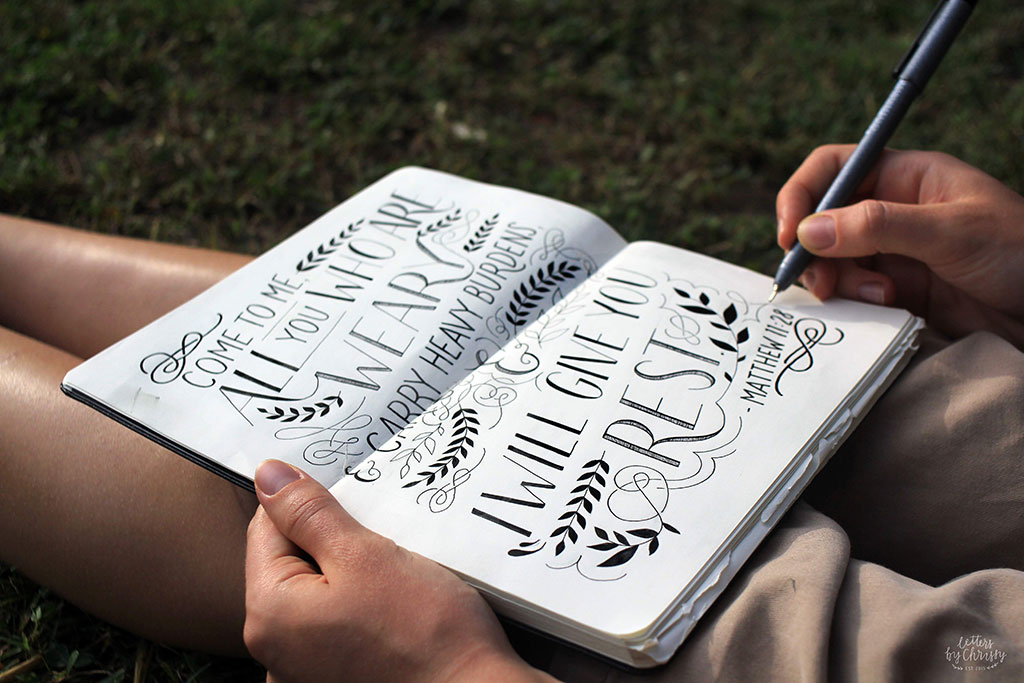 COME TO ME,
ALL YOU WHO ARE
WEARY
& CARRY HEAVY BURDENS,
&
I WILL GIVE YOU
REST.
- MATTHEW 11:28
letters
by Christy